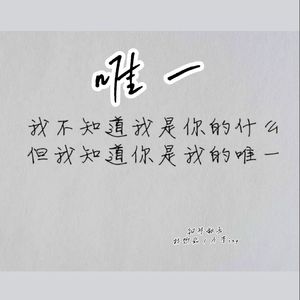 唯一
我不知道我是你的什么
但我知道你是我的唯一